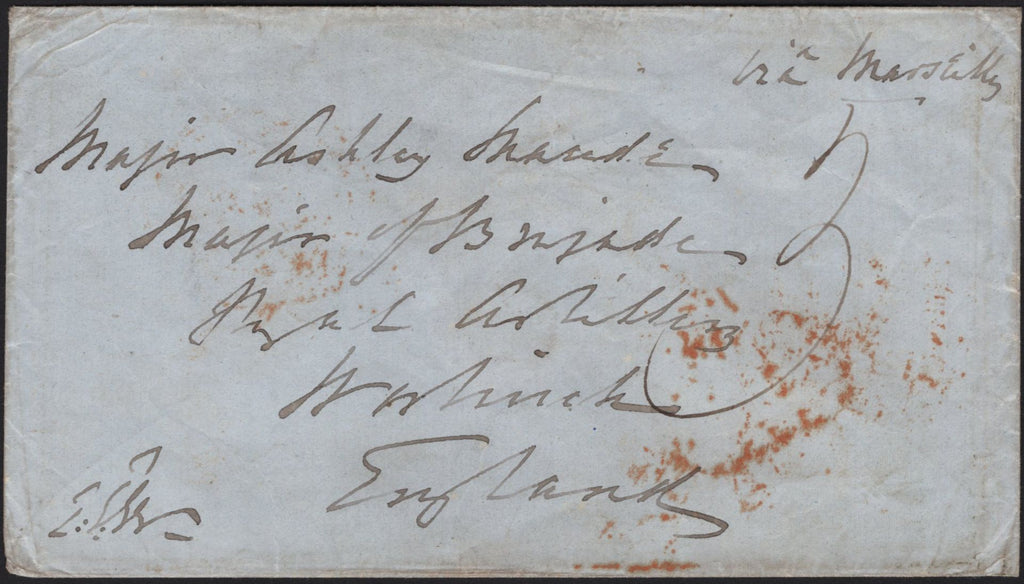 viâ Marseilles
Major Ashley Maude
Major of Brigade
Royal Artillery
Woolwich
England